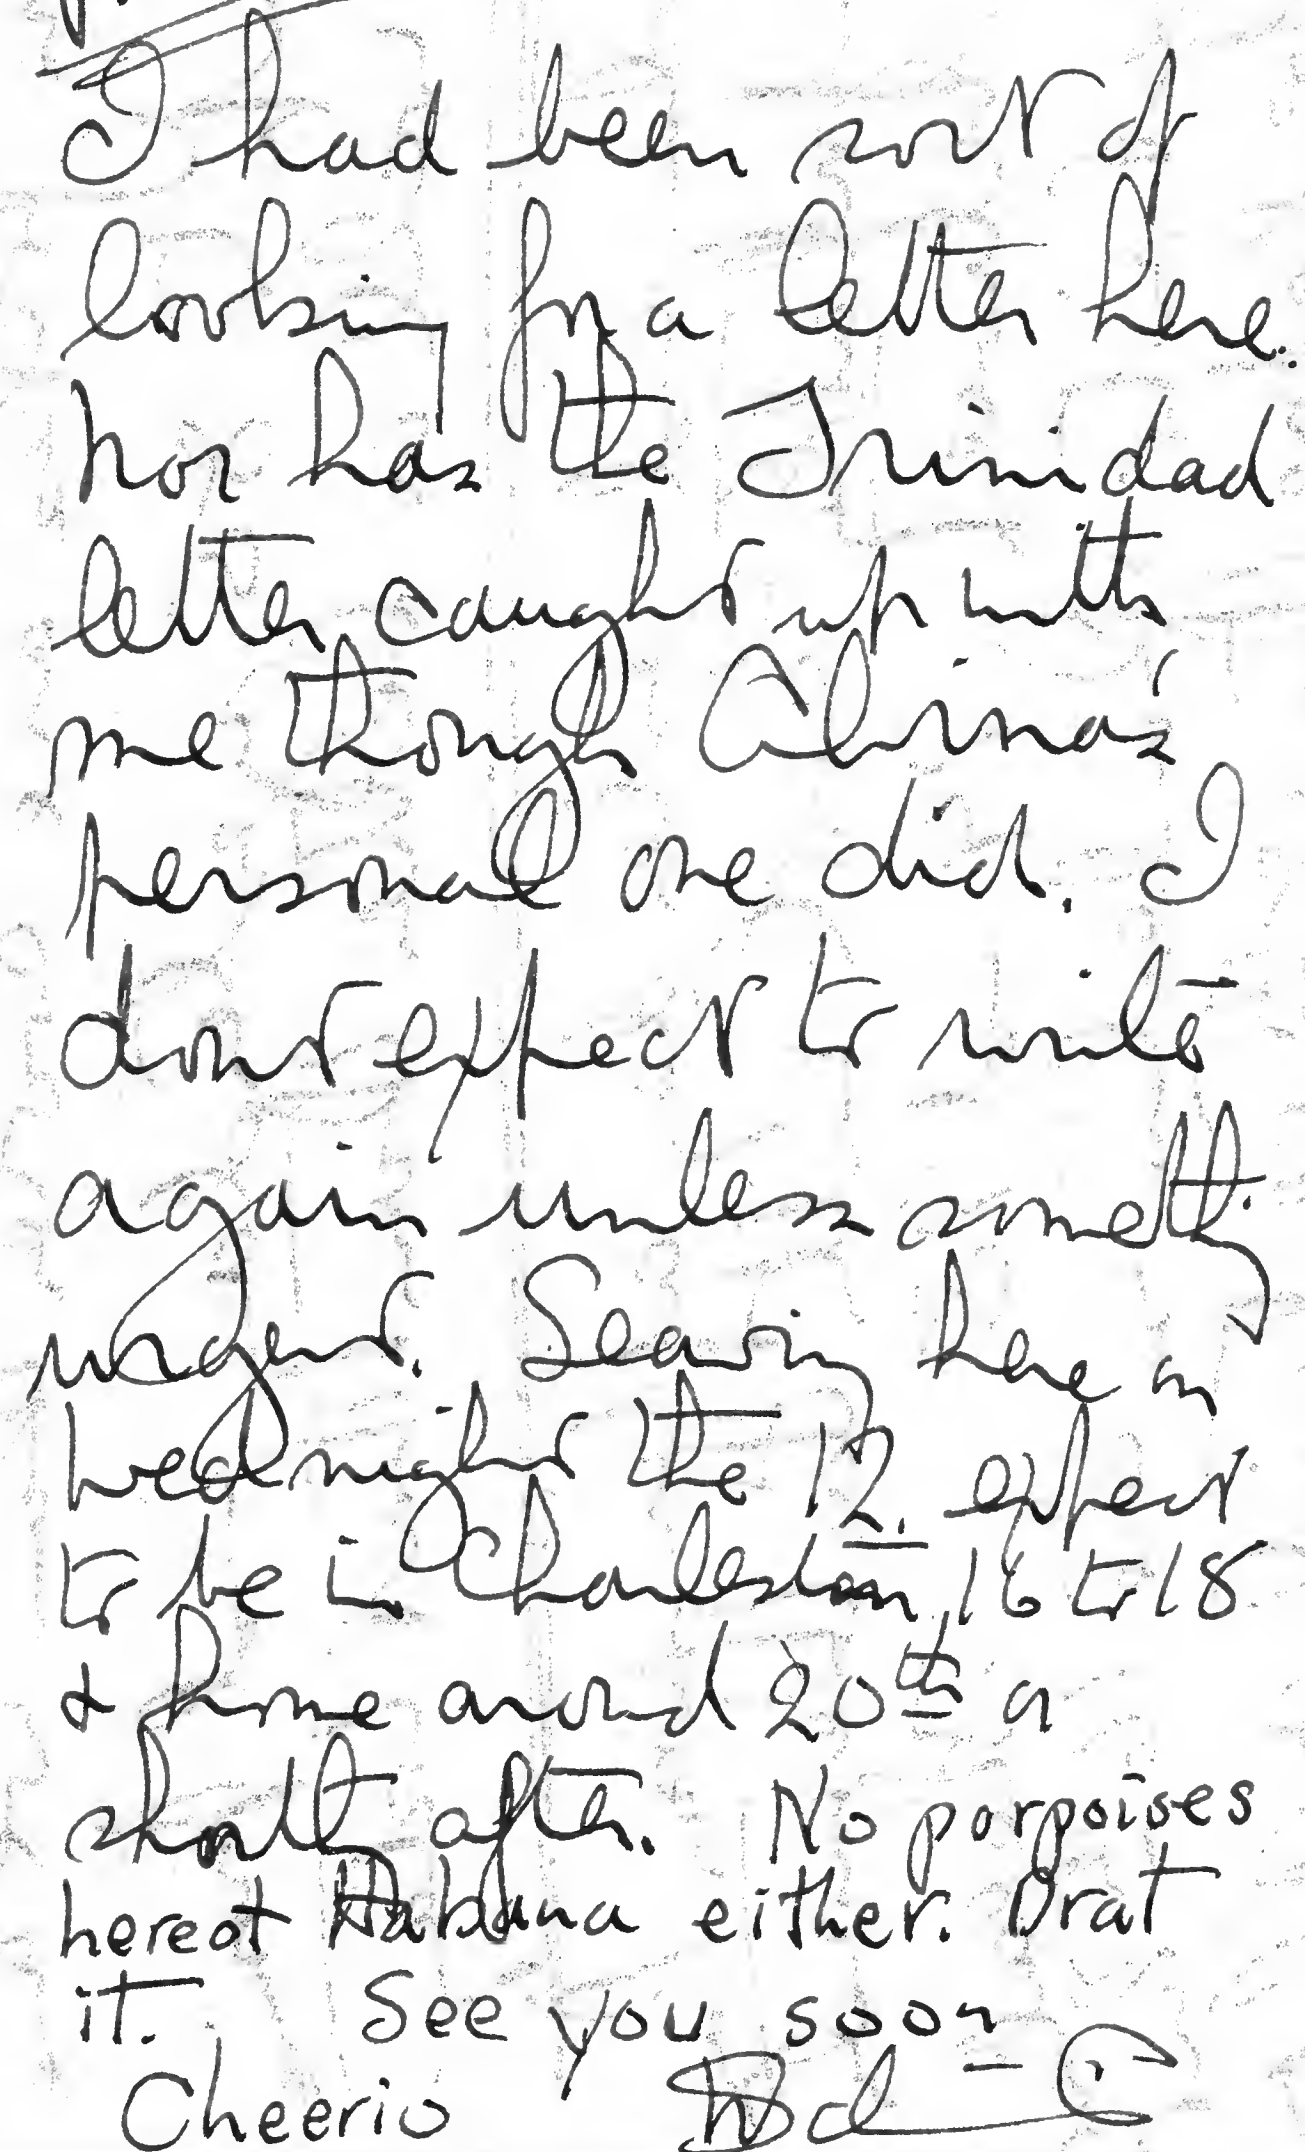 I had been sort of
looking for a letter here.
Nor has the Trinidad
letter caught up with
me though Alvina's
personal one did. I
dont expect to write
again unless something
urgent. Leaving here on
Wed night the 12. expect
to be in Charleston 16 to 18
& home around 20th or
shortly after. No porpoises
here at Habana either. Drat
it. See you soon
Cheerio